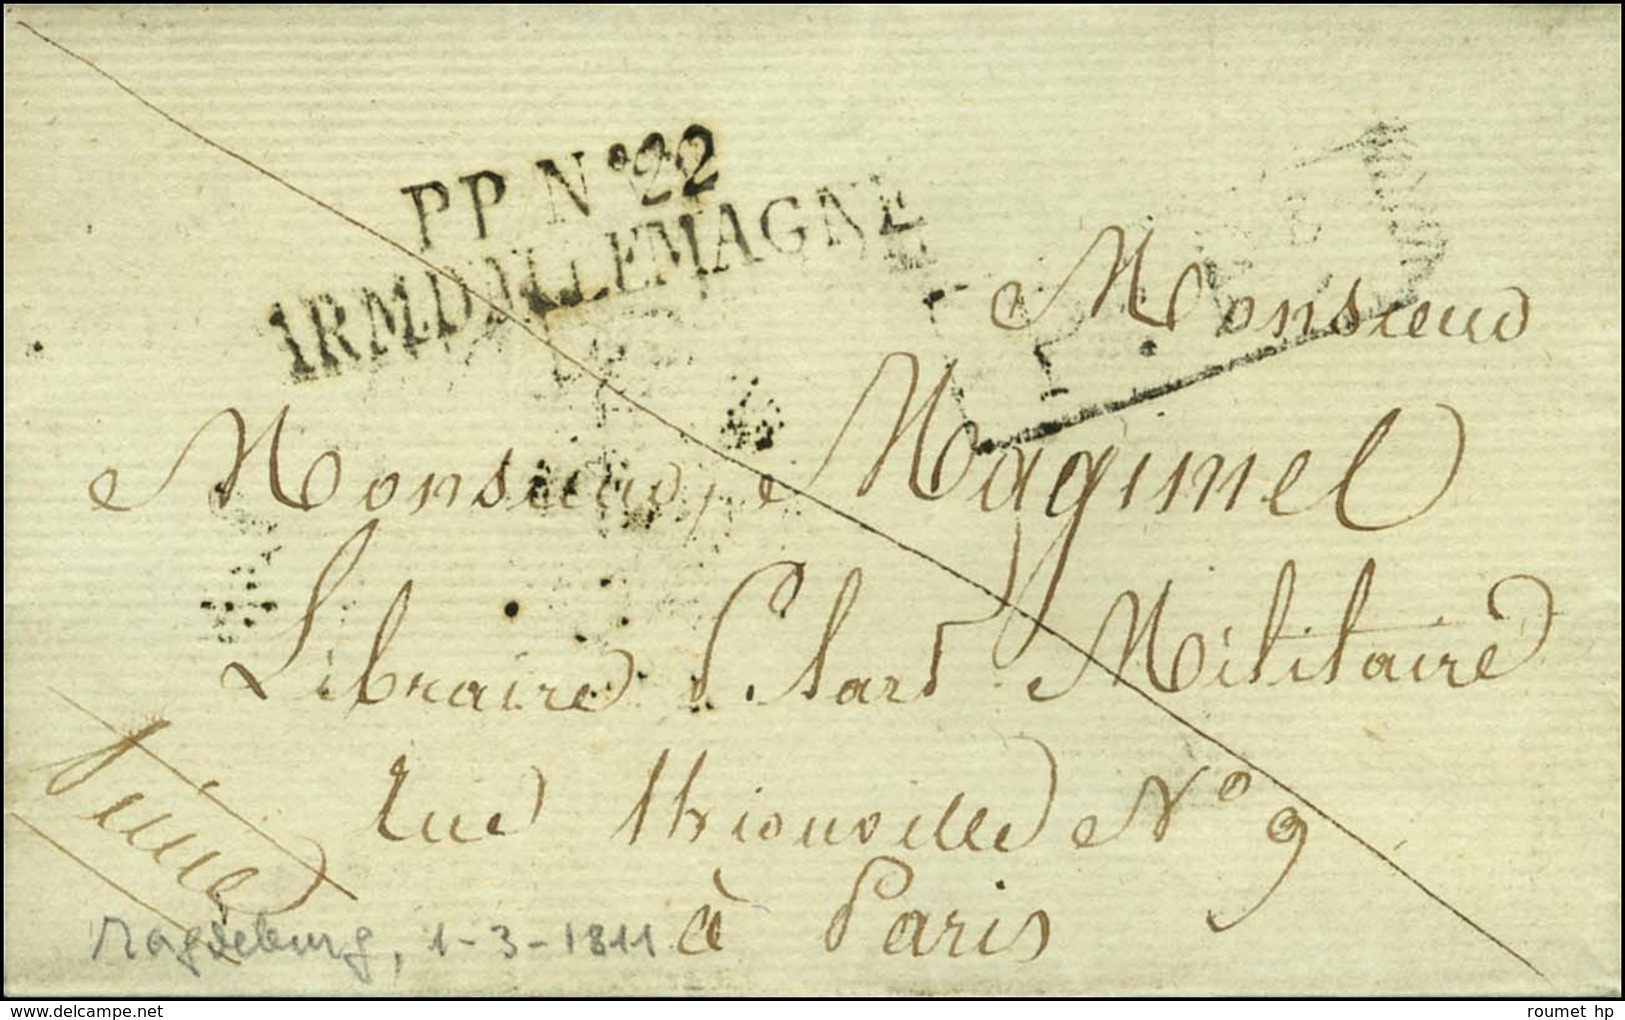 PP N° 22
ARM D'ALLEMAGNE
P.
Monsieur
Monsieur, Magimel
Libraire P. L'art Militaire
Rue thionville N° 9
à Paris
Magdeburg, 1-3-1811
www.delcampe.net
roumet hp